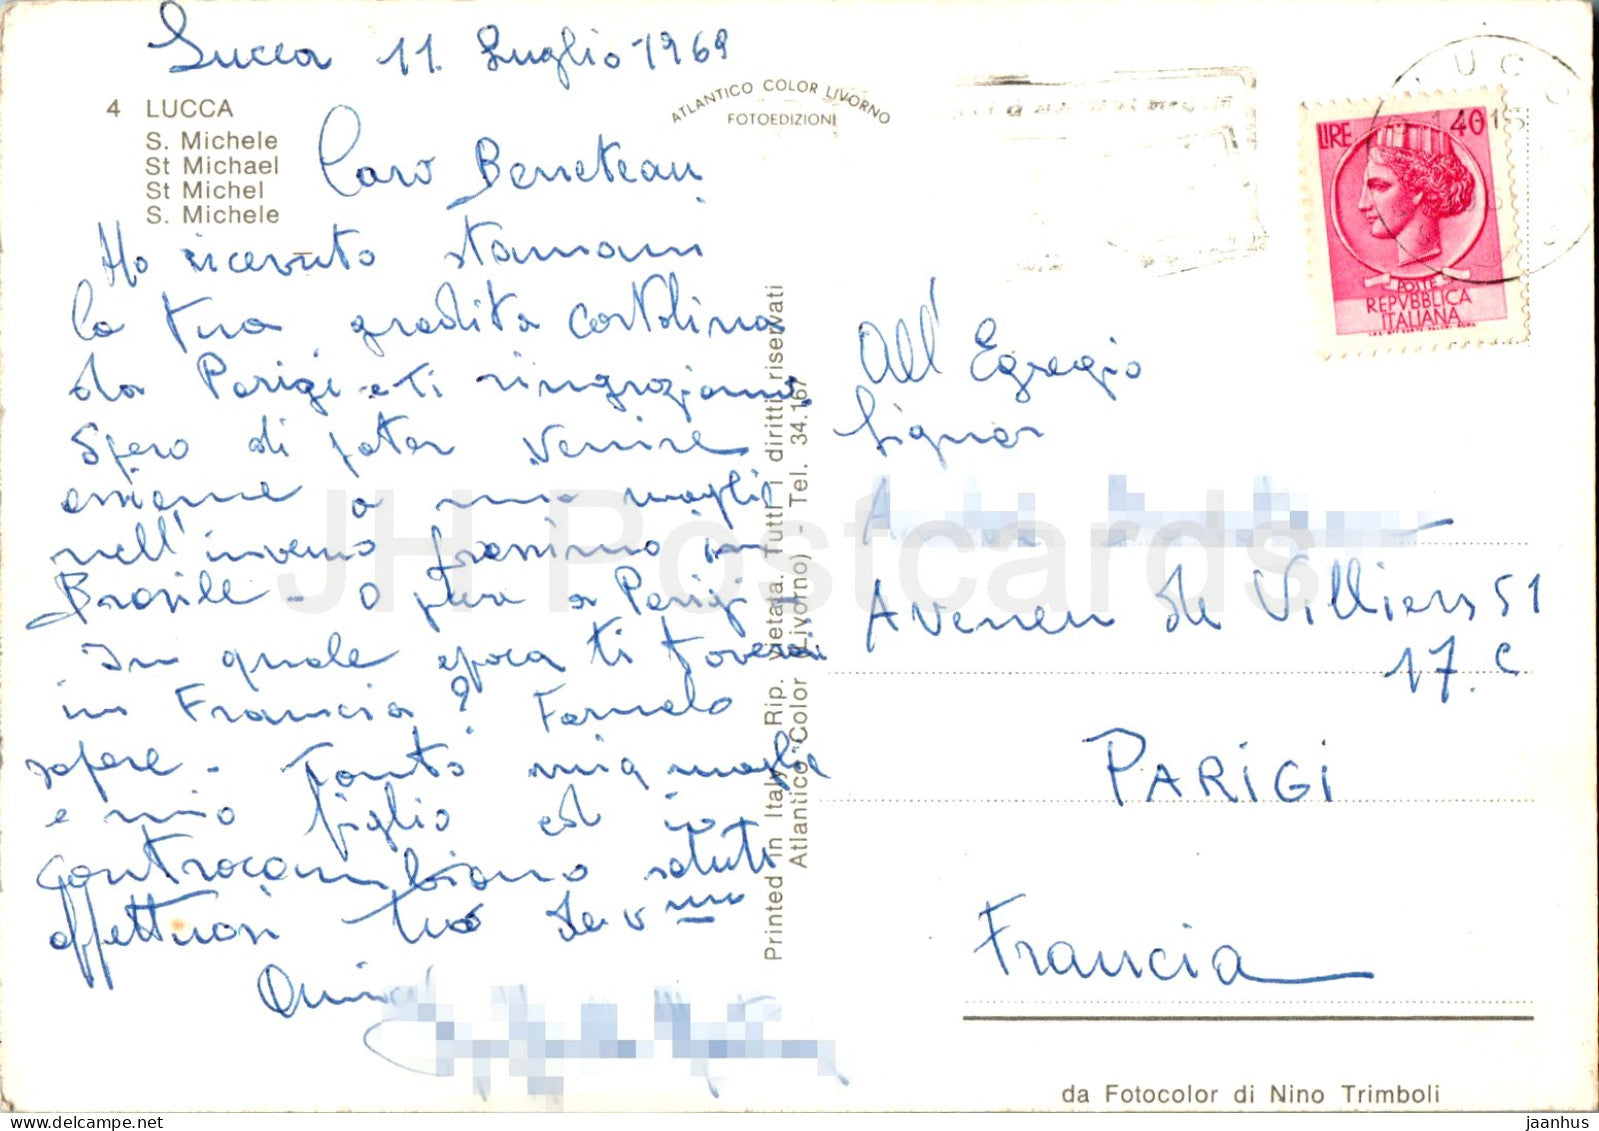 Lucca 11. Luglio 1969
4 LUCCA
S. Michele
St Michael
St Michel
S. Michele
ATLANTICO COLOR LIVORNO
FOTOEDIZIONI
Caro Berreteau
Ho ricevuto stamani
la tua gradita cartolina
da Parigi e ti ringraziamo
Spero di poter venire
assieme a mia moglie
nell'inverno prossimo in
Brasile - o pure a Parigi -
In quale epoca ti troverai
in Francia? Famelo
sapere - Tanto mia moglie
e mio figlio ed io
contracambiamo saluti
affettuosi tuo
Printed in Italy. Rip. vietata. Tutti i diritti riservati
Atlantico Color (Livorno) - Tel. 34.167
LUCCA
LIRE 40
POSTE
REPVBBLICA
ITALIANA
All' Egregio
Signor
Aveneu de Villiers 51
17.e
PARIGI
Francia
da Fotocolor di Nino Trimboli
JH Postcards
jaanhus @ delcampe.net